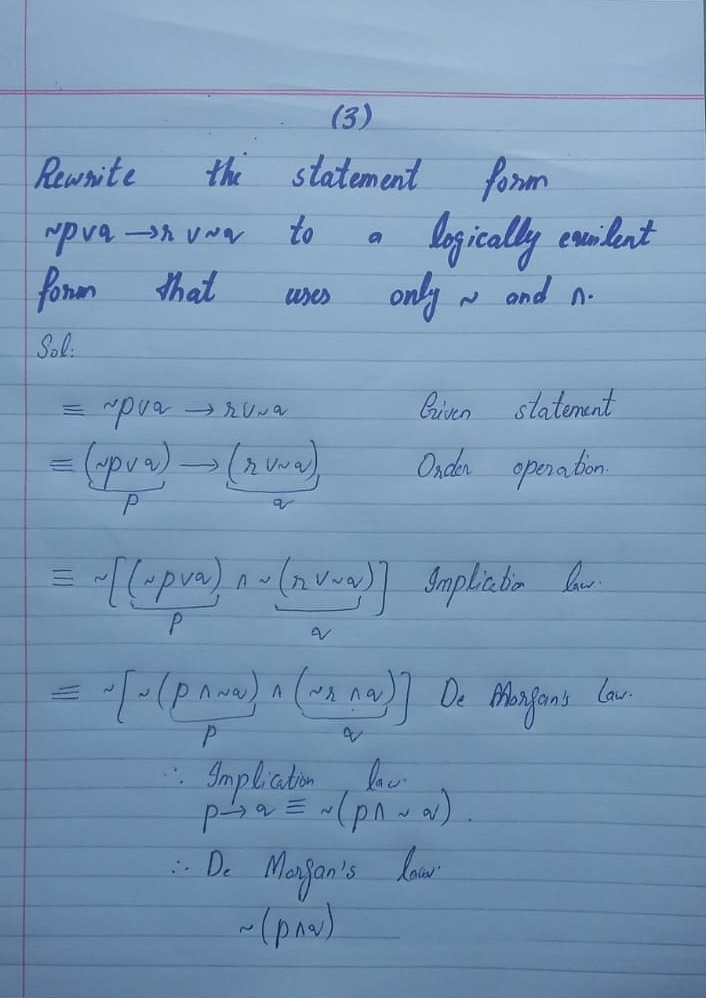 (3)
Rewrite the statement form
~p∨q →r ∨~q to a logically equilent
form that uses only ~ and ∧.
Sol:
≡ ~p∨q → r∨~q Given statement
≡ (~p∨q) → (r ∨~q) Order operation.
p q
≡ ~[(~p∨q) ∧ ~(r ∨~q)] Implication law.
p q
≡ ~[~(p ∧~q) ∧ (~r ∧q)] De Morgan's Law.
p q
∴ Implication law.
p→q ≡ ~(p∧ ~ q).
∴ De Morgan's law.
~(p∧q)